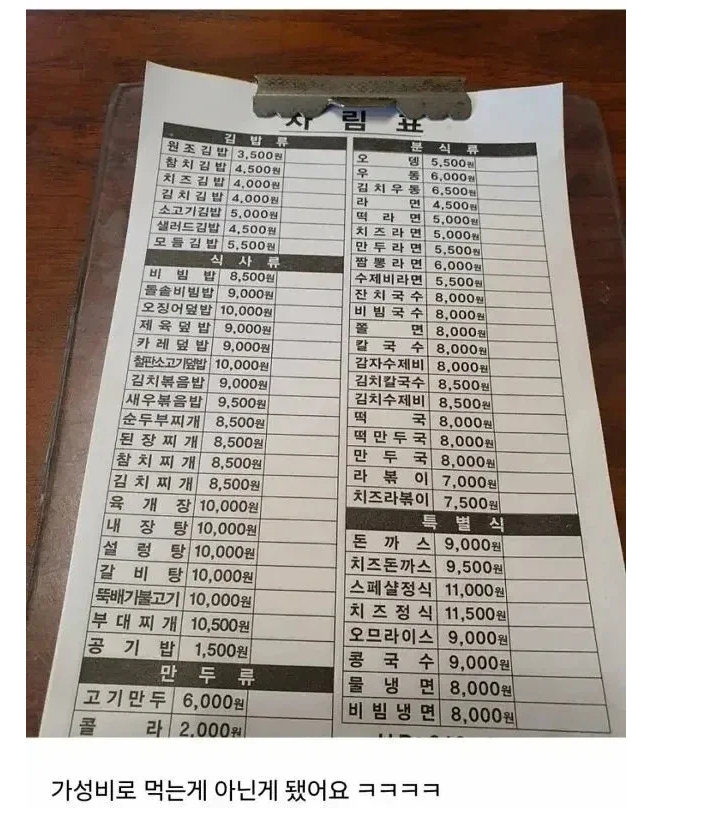 차 림 표
김 밥 류
원조김밥 3,500원
참치김밥 4,500원
치즈김밥 4,000원
김치김밥 4,000원
소고기김밥 5,000원
샐러드김밥 4,500원
모듬김밥 5,500원
식 사 류
비 빔 밥 8,500원
돌솥비빔밥 9,000원
오징어덮밥 10,000원
제육덮밥 9,000원
카레덮밥 9,000원
철판소고기덮밥 10,000원
김치볶음밥 9,000원
새우볶음밥 9,500원
순두부찌개 8,500원
된장찌개 8,500원
참치찌개 8,500원
김치찌개 8,500원
육 개 장 10,000원
내 장 탕 10,000원
설 렁 탕 10,000원
갈 비 탕 10,000원
뚝배기불고기 10,000원
부대찌개 10,500원
공 기 밥 1,500원
만 두 류
고기만두 6,000원
콜 라 2,000원
분 식 류
오 뎅 5,500원
우 동 6,000원
김치우동 6,500원
라 면 4,500원
떡 라 면 5,000원
치즈라면 5,000원
만두라면 5,500원
짬뽕라면 6,000원
수제비라면 5,500원
잔치국수 8,000원
비빔국수 8,000원
쫄 면 8,000원
칼 국 수 8,000원
감자수제비 8,000원
김치칼국수 8,500원
김치수제비 8,500원
떡 국 8,000원
떡만두국 8,000원
만 두 국 8,000원
라 볶 이 7,000원
치즈라볶이 7,500원
특 별 식
돈 까 스 9,000원
치즈돈까스 9,500원
스페샬정식 11,000원
치즈정식 11,500원
오므라이스 9,000원
콩 국 수 9,000원
물 냉 면 8,000원
비빔냉면 8,000원
가성비로 먹는게 아닌게 됐어요 ㅋㅋㅋㅋ